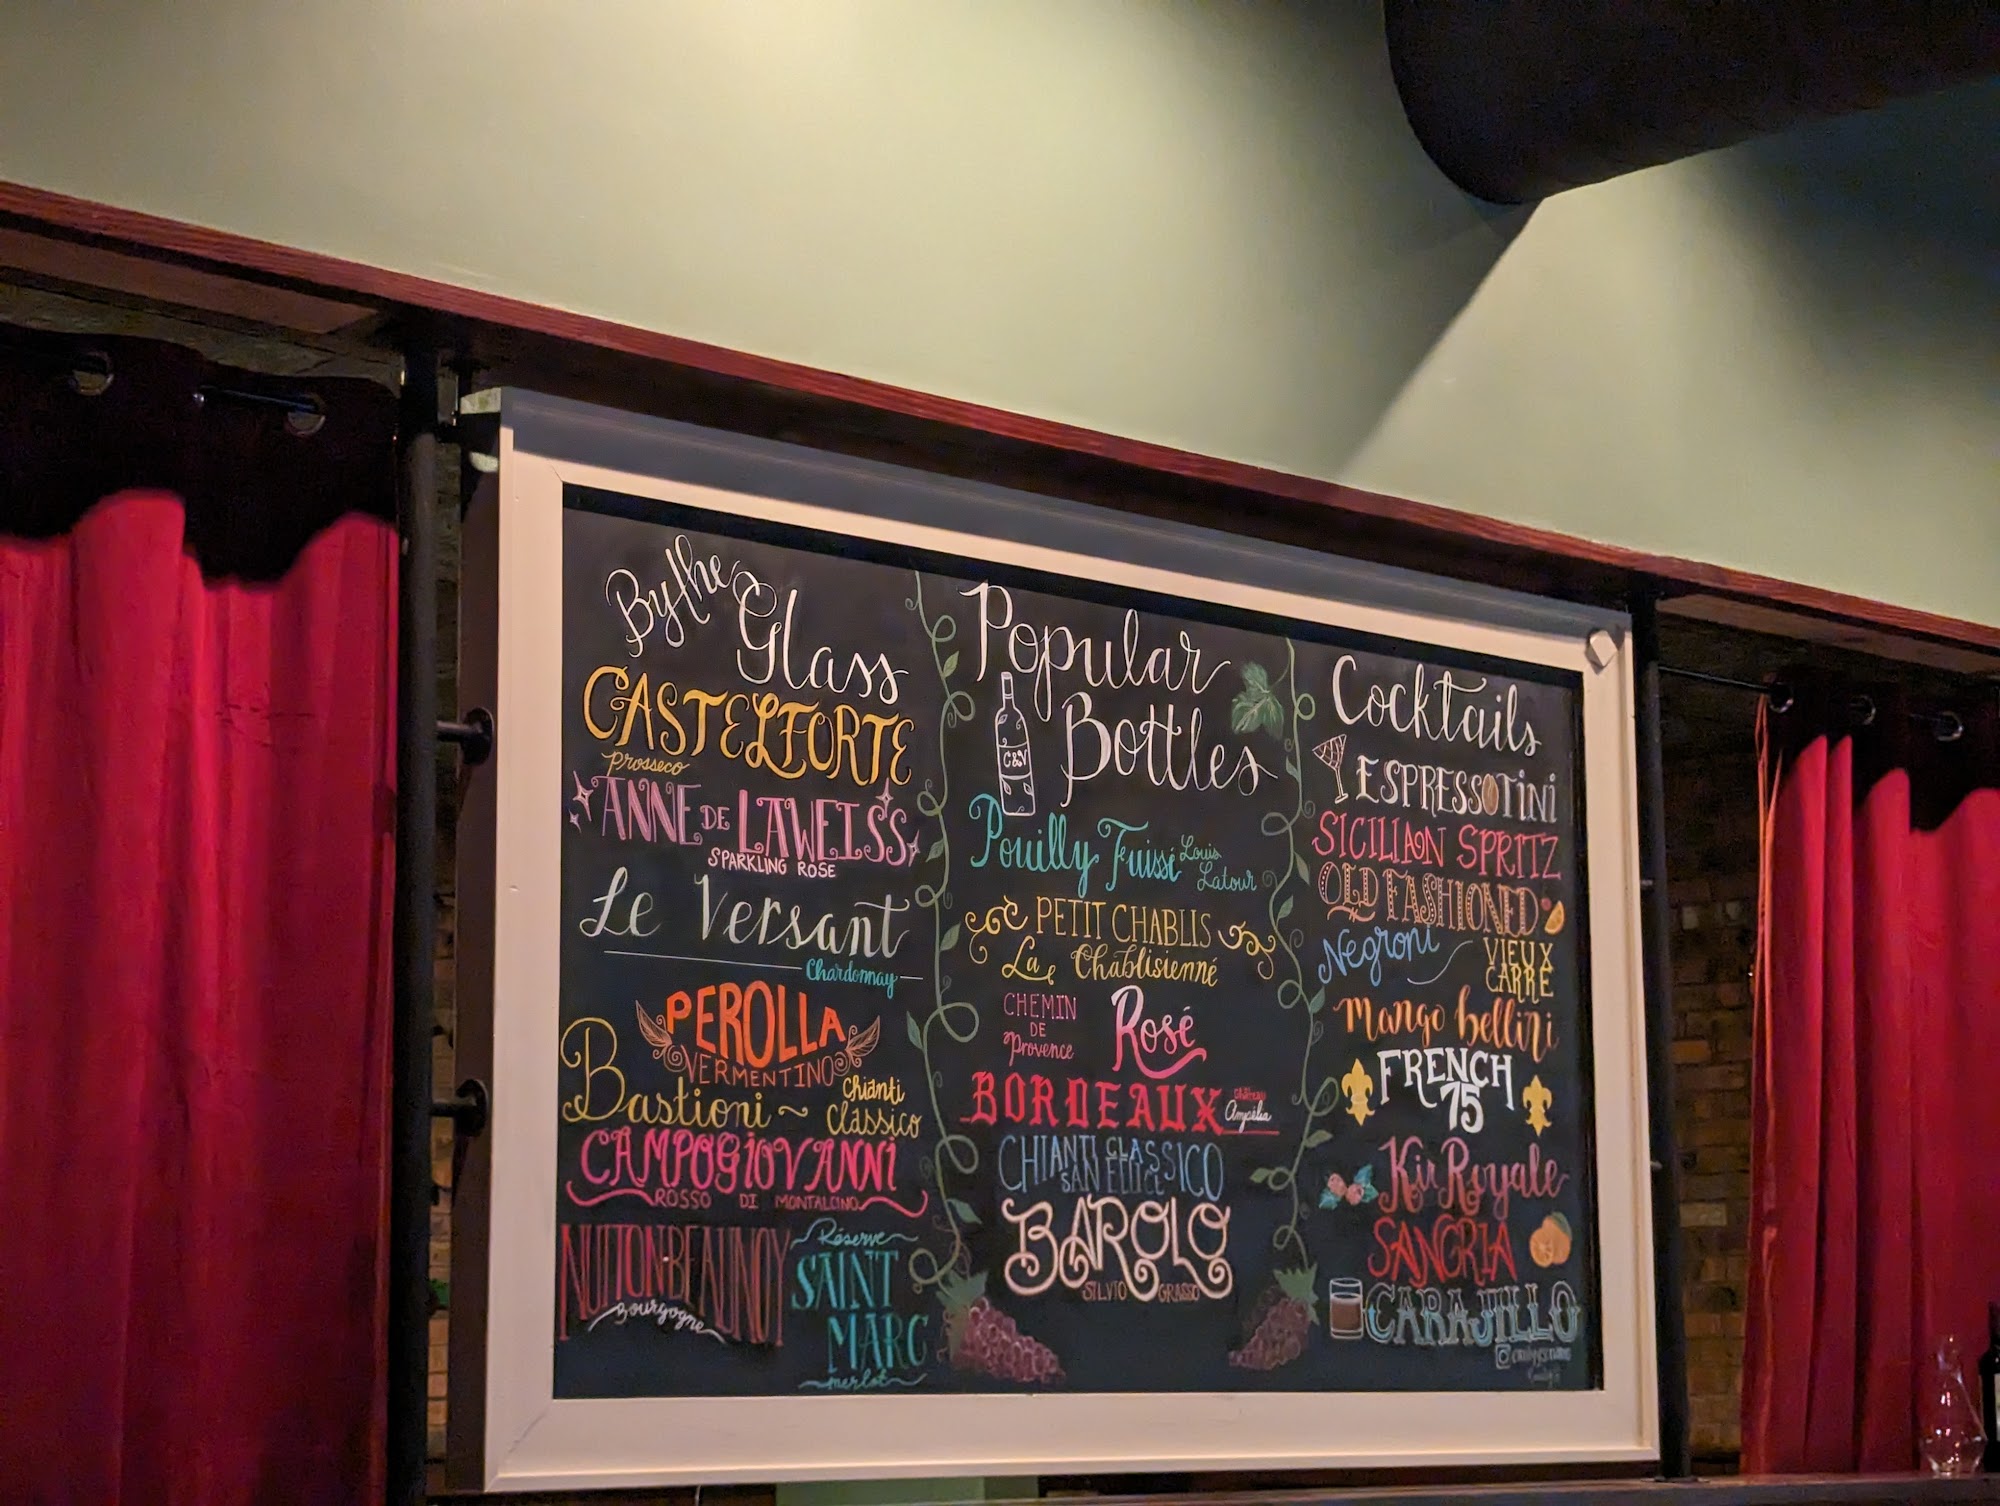 By the
Glass
CASTELFORTE
Prosseco
ANNE DE LAWEISS
SPARKLING ROSE
Le Versant
Chardonnay
PEROLLA
VERMENTINO
Bastioni ~ Chianti
Classico
CAMPOGIOVANNI
ROSSO DI MONTALCINO
NUITON BEAUNOY
Bourgogne
Réserve
SAINT
MARC
merlot
Popular
Bottles
C&V
Pouilly Fuissé Louis
Latour
PETIT CHABLIS
La Chablisienne
CHEMIN
DE
Provence
Rosé
BORDEAUX Château
Ampélia
CHIANTI CLASSICO
SAN FELICE
BAROLO
SILVIO GRASSO
Cocktails
ESPRESSOTINI
SICILIAN SPRITZ
OLD FASHIONED
Negroni
VIEUX
CARRE
Mango bellini
FRENCH
75
Kir Royale
SANGRIA
CARAJILLO